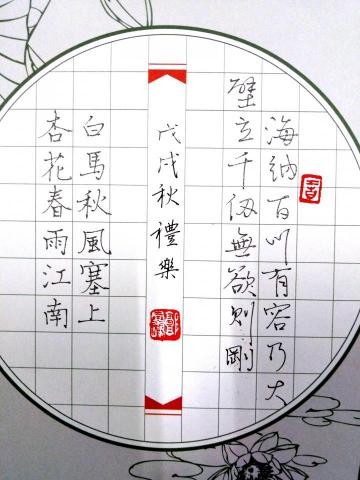 海納百川有容乃大
壁立千仞無欲則剛
戊戌秋禮樂
白馬秋風塞上
杏花春雨江南